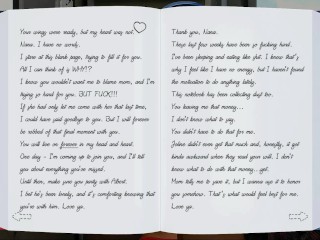 Your wings were ready, but my heart was not.
Nana. I have no words.
I stare at this blank page, trying to fill it for you.
All I can think of is WHY!?
I know you wouldn't want me to blame mom, and I'm
trying so hard for you. BUT FUCK!!!
If she had only let me come with her that last time,
I could have said goodbye to you. But I will forever
be robbed of that final moment with you.
You will live on forever in my head and heart.
One day - I'm coming up to join you, and I'll tell
you about everything you've missed.
Until then, make sure you party with Albert.
I bet he's been lonely, and it's comforting knowing that
you're with him. Love ya.
Thank you, Nana.
These last few weeks have been so fucking hard.
I've been sleeping and eating like shit. I know that's
why I feel like I have no energy, but I haven't found
the motivation to do anything lately.
This notebook has been collecting dust too.
You leaving me that money...
I don't know what to say.
You didn't have to do that for me.
Joline didn't even get that much and, honestly, it got
kinda awkward when they read your will. I don't
know what to do with that money...yet.
Mom tells me to save it, but I wanna use it to honor
you somehow. That's what would feel best for me.
Love ya.